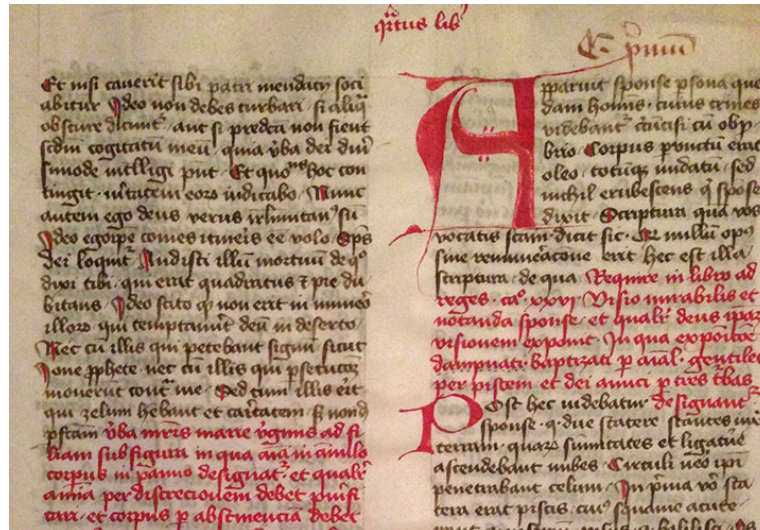 qrtus lib
C primum
Et nisi caverit sibi patri mendacij soci
abitur Ideo non debes turbari si aliqua
obscure dicuntr aut si predicta non fient
scdm cogitatū meū quia vba dei divsi
simode intelligi pnt Et quo hoc con
tingit vitatem eorz indicabo Nunc
autem ego deus verus
Ideo egoipe comes itineris ee volo Eps
dei loquitr Audisti illū mortuū de qo
dixi tibi qui erit quadratus et pie du
bitans Ideo scito q non erit in numeo
illorz qui temptauūt deū in deserto
Nec cū illis qui petebant signū sicut
Ione pphete nec cū illis qui psecucōz
mouerunt contra me Sed cum illis erit
qui zelum hebant et caritatem sz nond
pfcam vba mris marie vginis ad fi
liam sub figura in qua aīa in anulo
corpus in panno designatr et qualr
anima per discrecionem debet purifi
cari et corpus p abstinenciā debet
Apparuit sponse psona que
dam homis cuius crines
videbantr circūcisi cū obp
brio Corpus pounctū erat
oleo totūqz nudatū sed
nichil erubescens q sponse
dixit Scriptura quā vos
vocatis scam dicit sic qr nullū opus
sine remūeracone erit hec est illa
scriptura de qua Require in libro ad
reges cao xxvi Visio mirabilis et
notanda sponse et qualr deus ipaz
visionem exponit In qua expōicōe
dampnati baptizati p aīal gentiles
per piscem et dei amici p tres tbas
Post hec videbatur designantr
sponse q due statere stantes iux
terram quarz sūmitates et ligature
ascendebant nubes Circuli vēo ipi
penetrabant celum In prima vo sta
tera erat piscis cuis squame acute